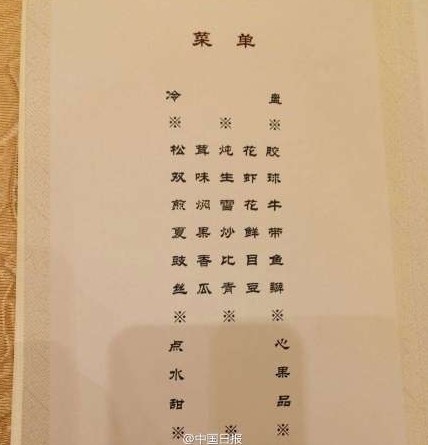 菜 单
冷 盘
※ ※ ※
松茸炖花胶
双味生虾球
煎焖雪花牛
夏果炒鲜带
豉香比目鱼
丝瓜青豆瓣
※ ※ ※
点 心
水 果
甜 品
※ ※ ※
@中国日报